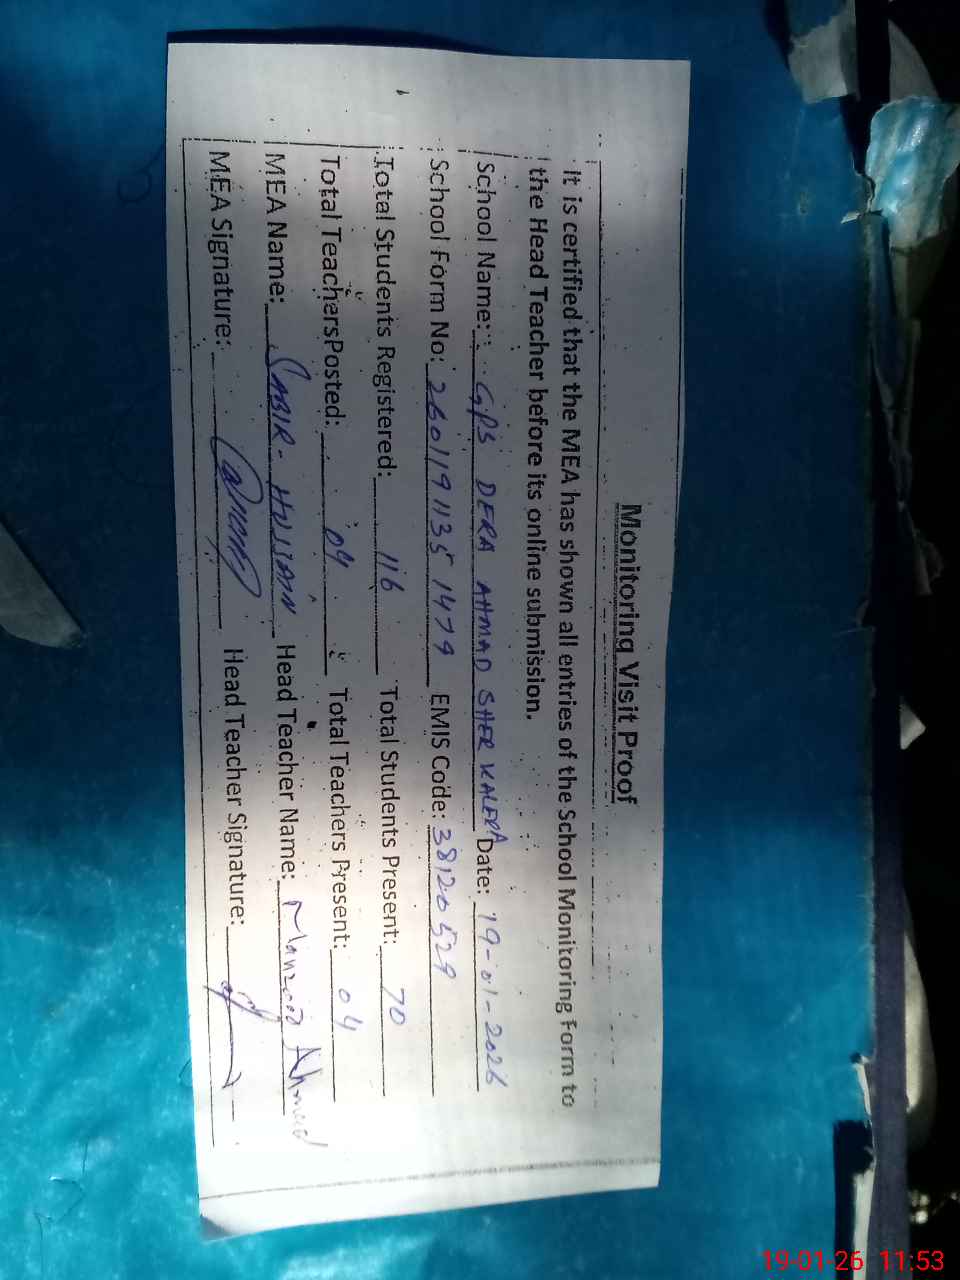 Monitoring Visit Proof
It is certified that the MEA has shown all entries of the School Monitoring Form to
the Head Teacher before its online submission.
School Name: GPS DERA AHMAD SHER KALERA Date: 19-01-2026
School Form No: 260119 1135 1479 EMIS Code: 38120529
Total Students Registered: 116 Total Students Present: 70
Total TeachersPosted: 04 Total Teachers Present: 04
MEA Name: SABIR-HUSSAIN Head Teacher Name: Manzoor Ahmad
MEA Signature: Head Teacher Signature:
19-01-26 11:53